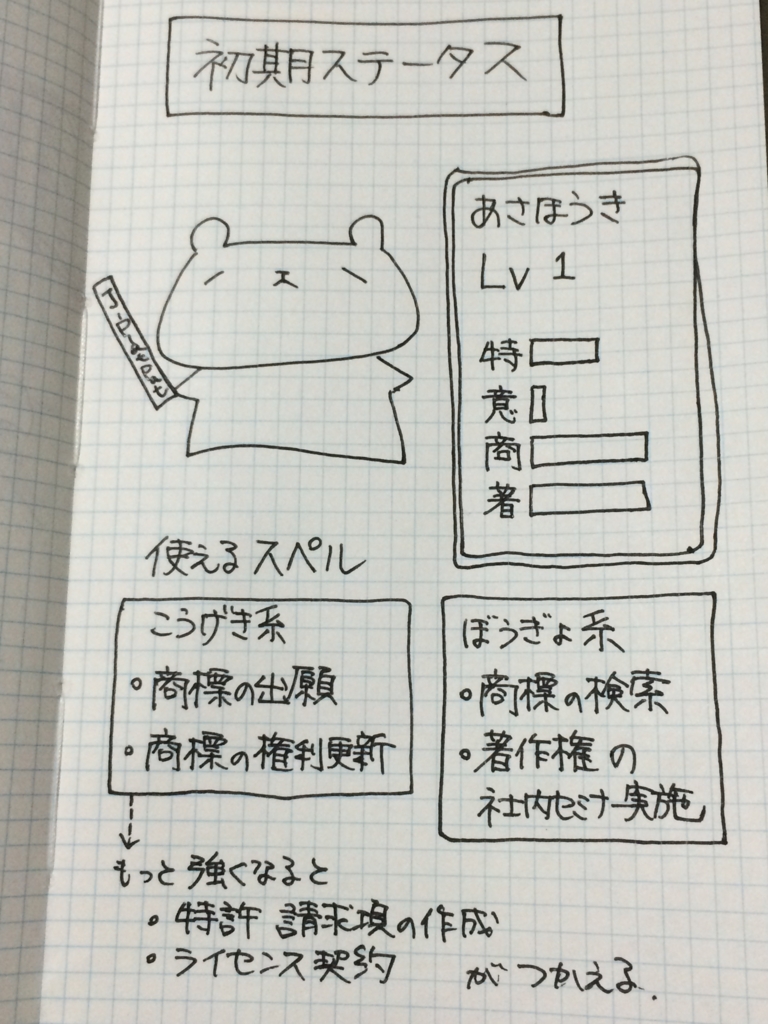 初期ステータス
あさほうき
Lv 1
特
意
商
著
使えるスペル
こうげき系
・商標の出願
・商標の権利更新
ぼうぎょ系
・商標の検索
・著作権の
社内セミナー実施
もっと強くなると
・特許 請求項の作成
・ライセンス契約
がつかえる.